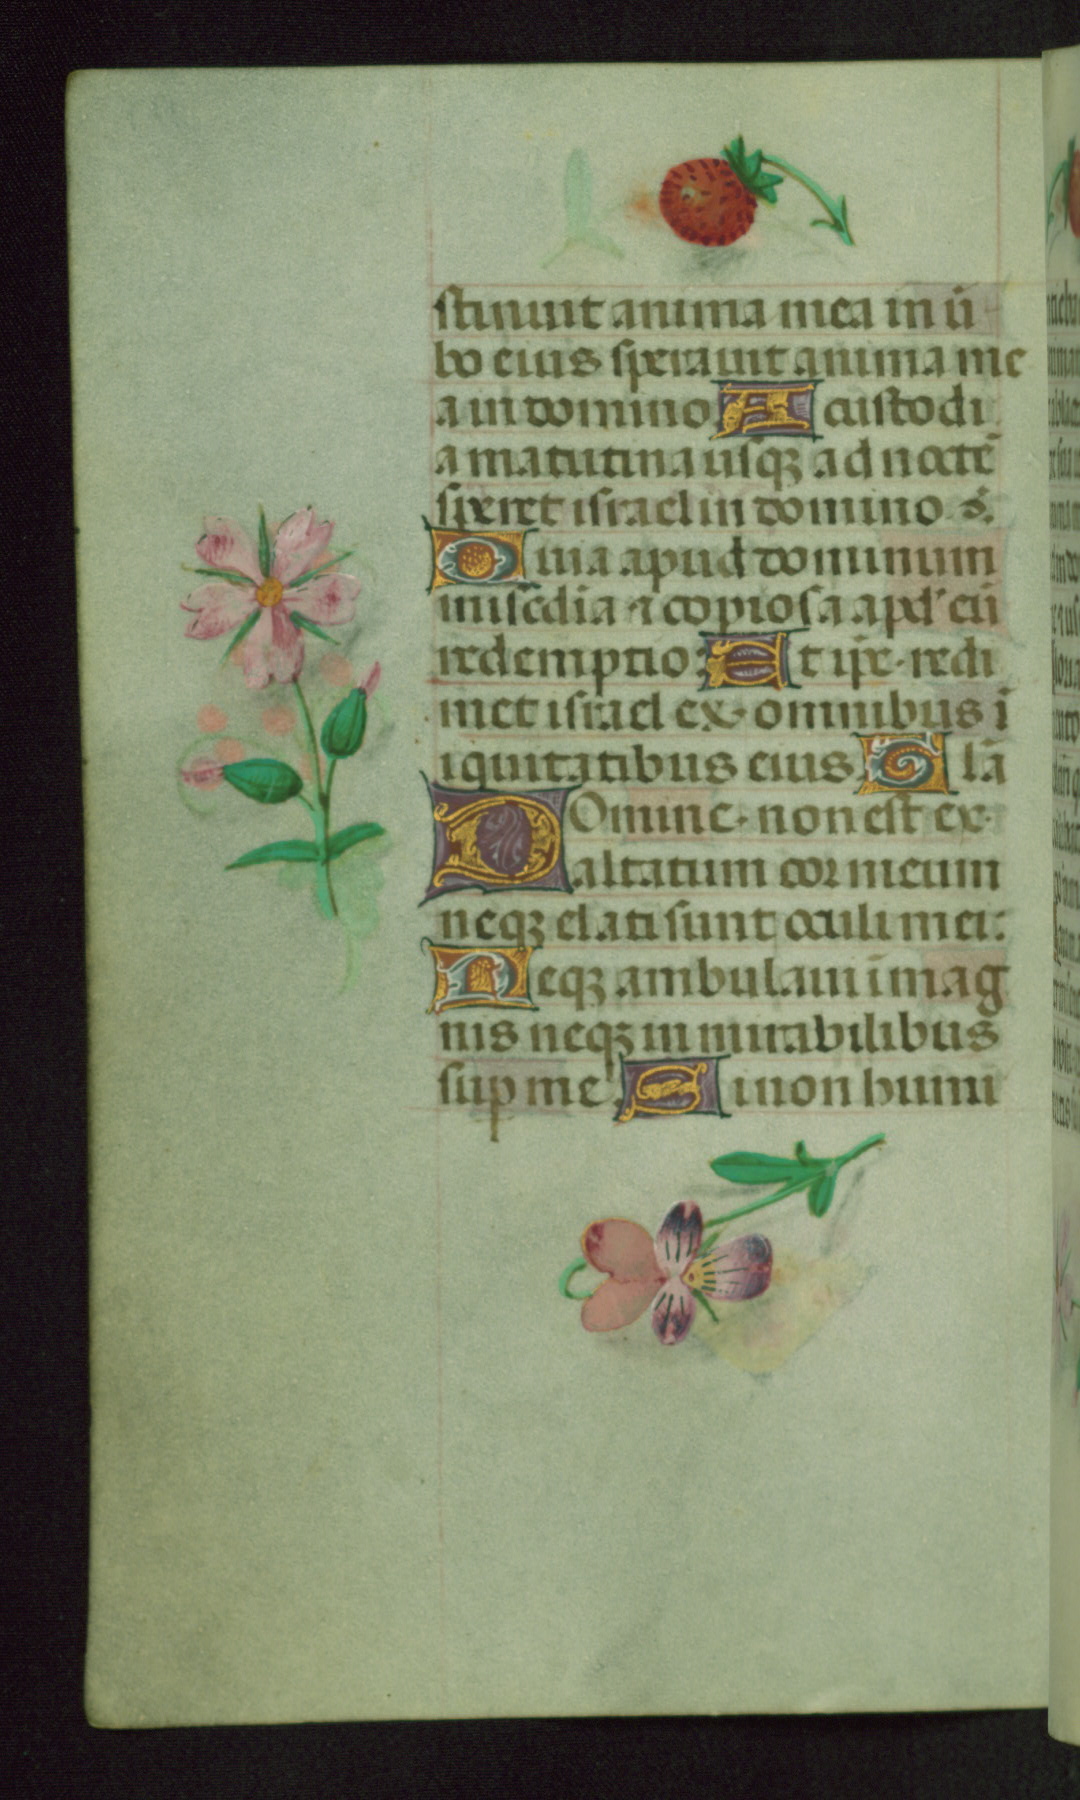 stinuit anima mea in ū
bo eius sperauit anima me
a in domino A custodi
a matutina usqꝫ ad noctē
speret israel in domino. ꝟ.
Quia apud dominum
misc̄dia ⁊ copiosa apd' eū
redemptio: Et ip̄e redi
met israel ex omnibus ī
iquitatibus eius. Glā
DOmine non est ex
altatum cor meum
neqꝫ elati sunt oculi mei:
Neqꝫ ambulaui ī mag
nis neqꝫ in mirabilibus
sup me. Si non humi